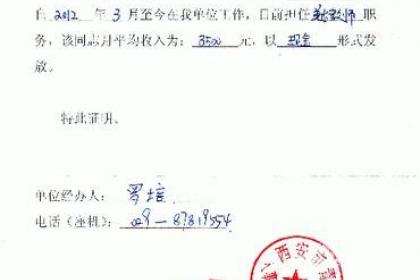 自 2012 年 3 月至今在我单位工作，目前担任 教师 职
务，该同志月平均收入为：3500 元，以 现金 形式发
放。
特此证明。
单位经办人：罗培
电话（座机）：029-87819554
西安市